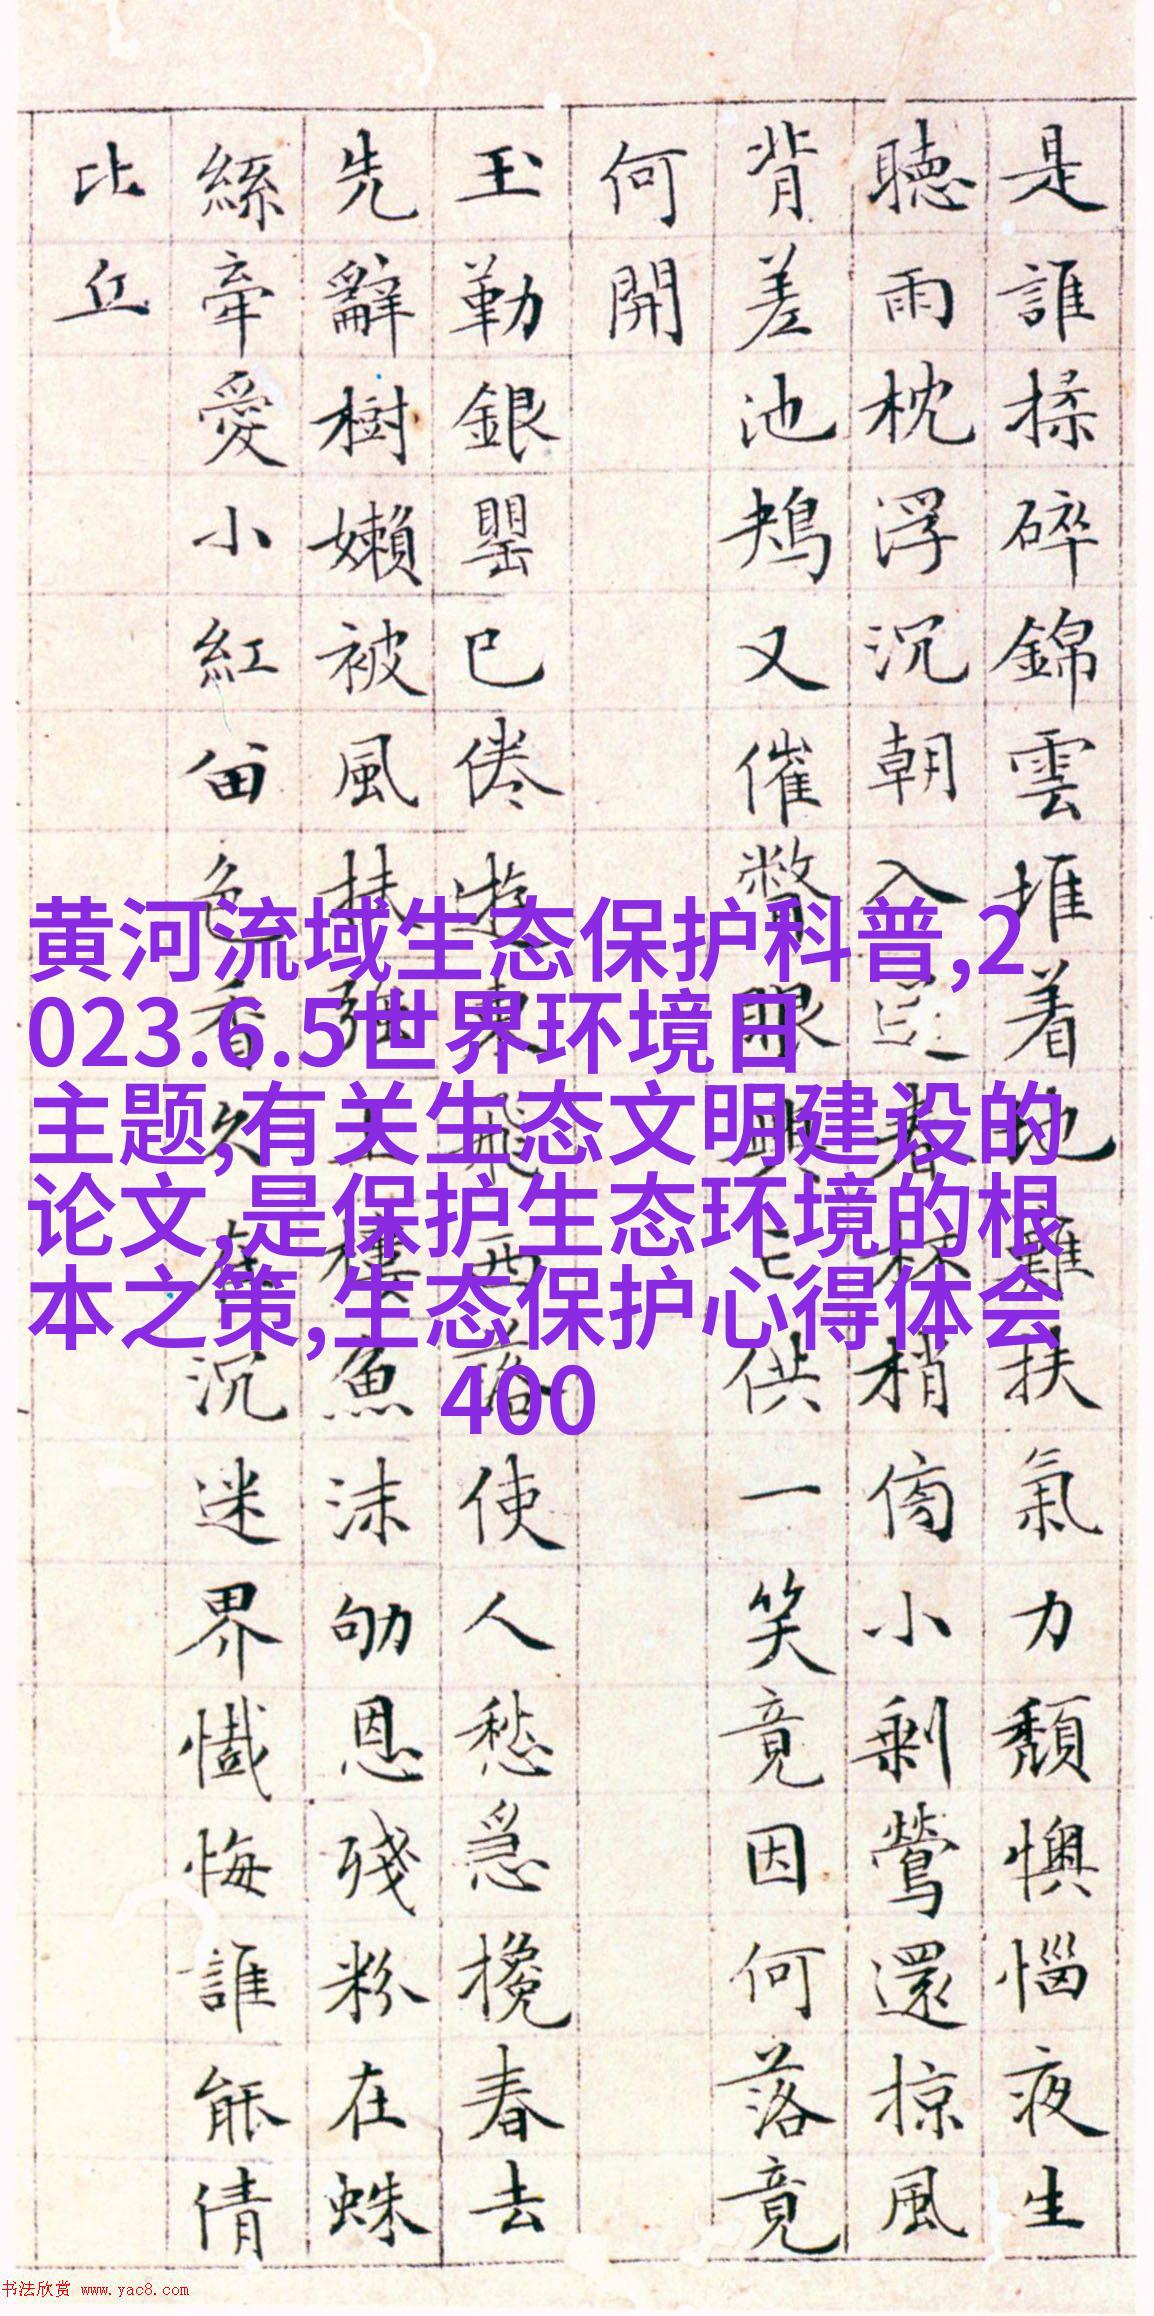 是誰揉碎錦雲堆着地難扶氣力頹懊惱夜生
聽雨枕浮沉朝入送春杯梢小剩鶯還掠風
背差池又催瞥眼興亡供一笑竟因何落竟
何開
玉勒銀罌已倦遊東飛西落使人愁急攙春去
先辭樹嬾被風扶強上樓魚沫劬恩殘粉在蛛
絲牽愛小紅留色香久在沉迷界懺悔誰能倩
比丘
黄河流域生态保护科普,2
023.6.5世界环境日
主题,有关生态文明建设的
论文,是保护生态环境的根
本之策,生态保护心得体会
400
书法欣赏 www.yac8.com